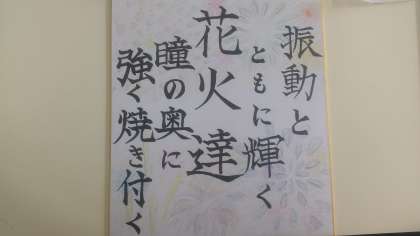 振動と
ともに輝く
花火達
瞳の奥に
強く焼き付く